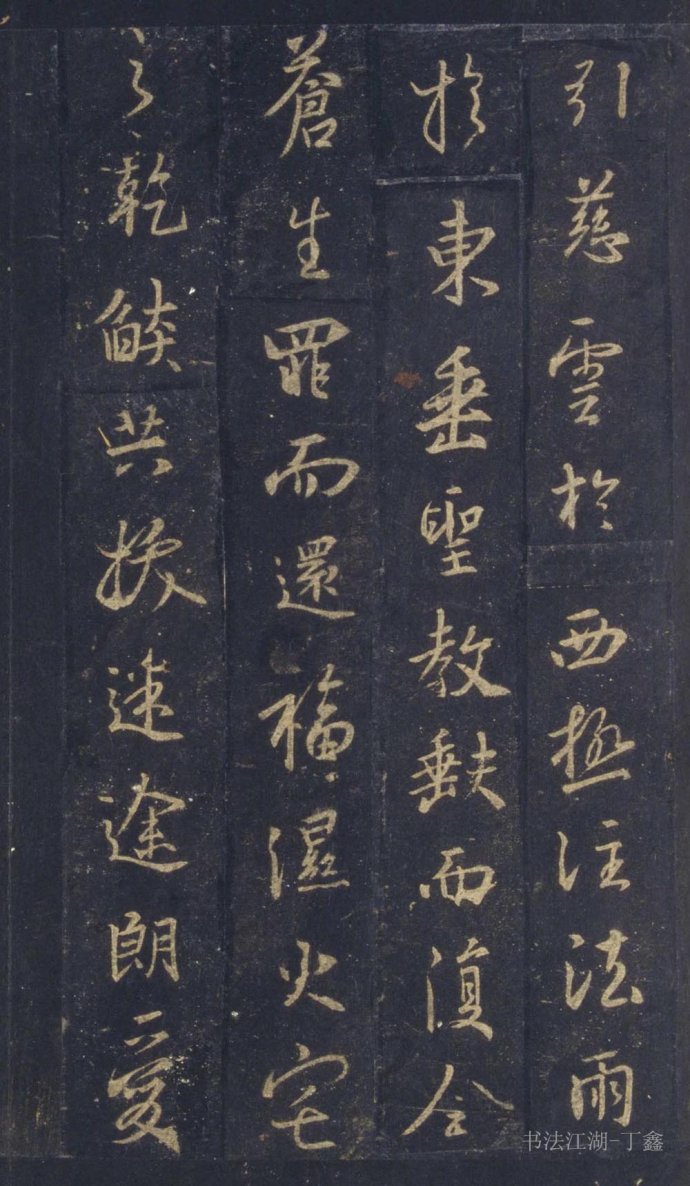 引慈雲於西極注法雨
於東垂聖教缺而復全
蒼生罪而還福濕火宅
之乾燄共拔迷途朗愛
书法江湖-丁鑫